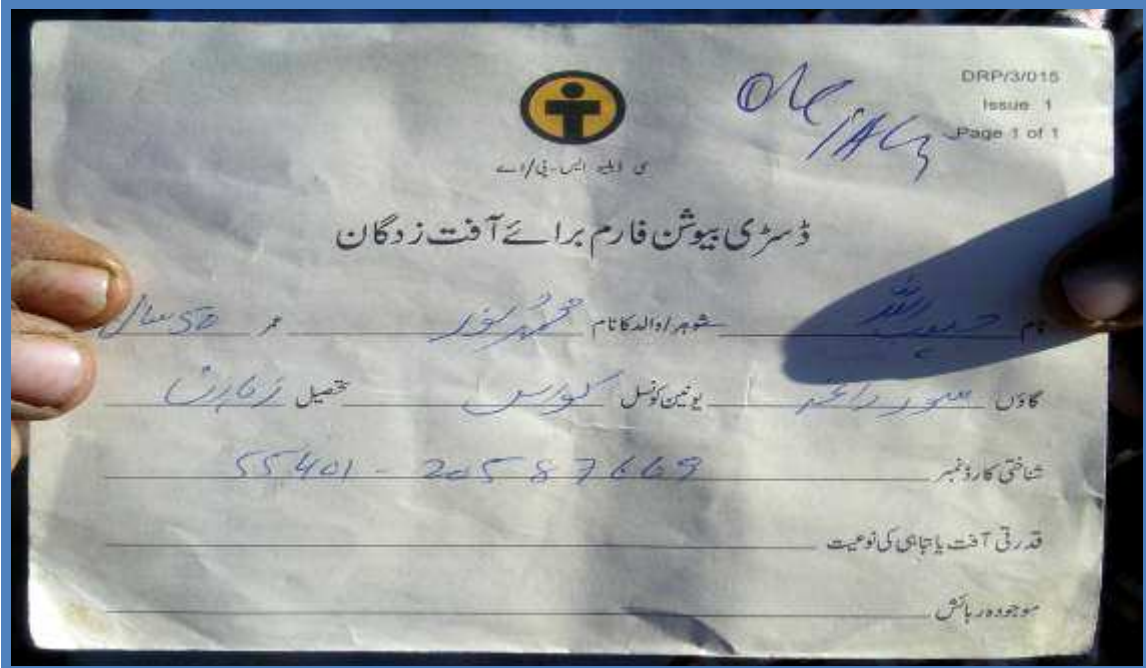 DRP/3/015
Issue 1
Page 1 of 1
سی ڈبلیو ایس-پی/اے
ڈسٹری بیوشن فارم برائے آفت زدگان
نام حبیب اللہ شوہر/والد کا نام محمد نور عمر 50 سال
گاؤں یونین کونسل تحصیل زیارت
شناختی کارڈ نمبر 55401-20587669
قدرتی آفت یا تباہی کی نوعیت
موجودہ رہائش